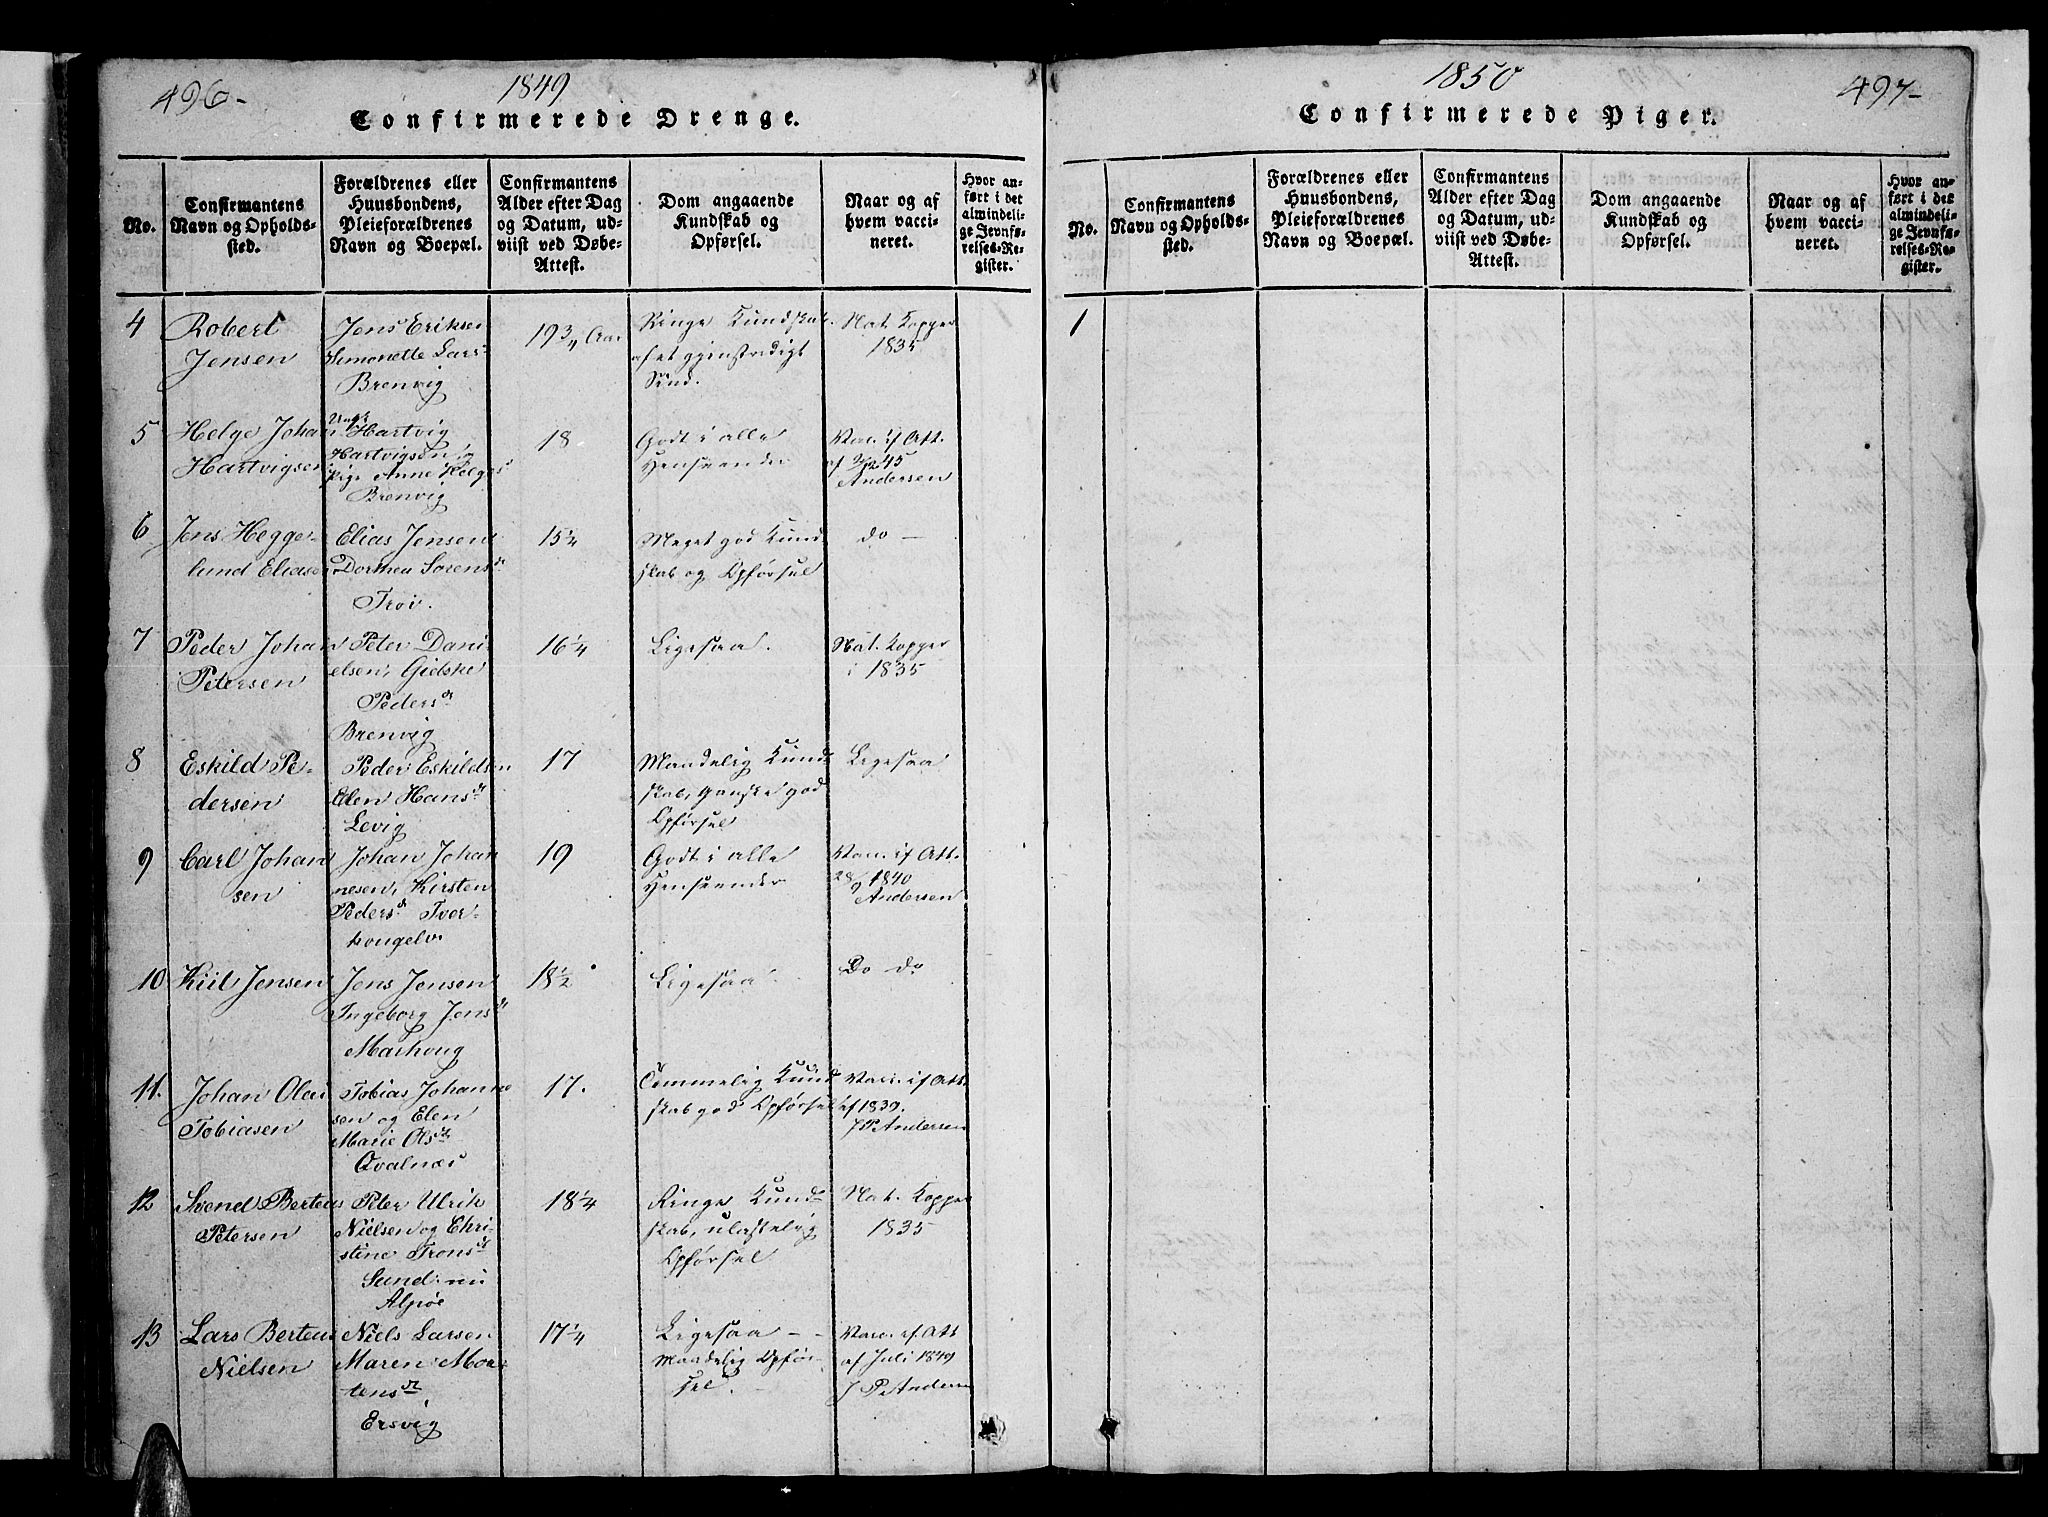 496-
1849
Confirmerede Drenge.
No.
Confirmantens
Navn og Opholds-
sted.
Forældrenes eller
Huusbondens,
Pleieforældrenes
Navn og Boepæl.
Confirmantens
Alder efter Dag
og Datum, ud-
viist ved Døbe-
Attest.
Dom angaaende
Kundskab og
Opførsel.
Naar og af
hvem vacci-
neret.
Hvor an-
ført i det
almindeli-
ge Jevnfø-
relses-Re-
gister.
4
Robert
Jensen
Jens Eriksen
Simonette Lars
Brenvig
19 3/4 Aar
Ringe Kundskab
af et gjenstridigt
Sind.
Nat. Kopper
1835
5
Helge Johan
Hartvigsen
Ungk. Hartvig
Hartvigsen,
pige Anne Helgesd
Brenvig
18
Godt i alle
Henseender
Vacc. if Att.
af 2/12 45
Andersen
6
Jens Hegge-
lund Eliasen
Elias Jensen
Dorthea Sørensd
Troi.
15 1/4
Meget god Kund
skab og Opførsel
do —
7
Peder Johan
Petersen
Peter Dani-
elsen, Gidske
Pedersd
Brenvig
16 1/4
Ligesaa.
Nat. Kopper
i 1835
8
Eskild Pe-
dersen
Peder Eskildsen
Elen Hansd
Levig
17
Maadelig Kund
skab, Ganske god
Opførsel
Ligesaa
9
Carl Johan
sen
Johan Johan
nesen, Kirsten
Pedersd Tver-
kongelv.
19
Godt i alle
Henseender
Vacc. if Att.
28/9 1840
Andersen
10
Kiil Jensen
Jens Jensen
Ingeborg Jensd
Marhoug
18 1/2
Ligesaa
Do do
11.
Johan Olai
Tobiasen
Tobias Johanne
sen og Elen
Marie Olsd
Qvalnæs
17.
Temmelig Kund
skab god Opførsel
Vacc. if Att.
af 1839.
J P Andersen
12
Svend Berteus
Petersen
Peter Ulrik
Nielsen og Chri-
stine Tronsd
Sund. nu
Alpøe
18 1/4
Ringe Kund-
skab, ulastelig
Opførsel
Nat. Kopper
1835
13
Lars Berteus
Nielsen
Niels Larsen
Maren Mor-
tensd
Ersvig
17 1/4
Ligesaa - -
Maadelig Opfør-
sel.
Vacc. if Att
af Juli 1849
J P Andersen
1850
497-
Confirmerede Piger.
No.
Confirmantens
Navn og Opholds-
sted.
Forældrenes eller
Huusbondens,
Pleieforældrenes
Navn og Boepæl.
Confirmantens
Alder efter Dag
og Datum, ud-
viist ved Døbe-
Attest.
Dom angaaende
Kundskab og
Opførsel.
Naar og af
hvem vacci-
neret.
Hvor an-
ført i det
almindeli-
ge Jevnfø-
relses-Re-
gister.
1